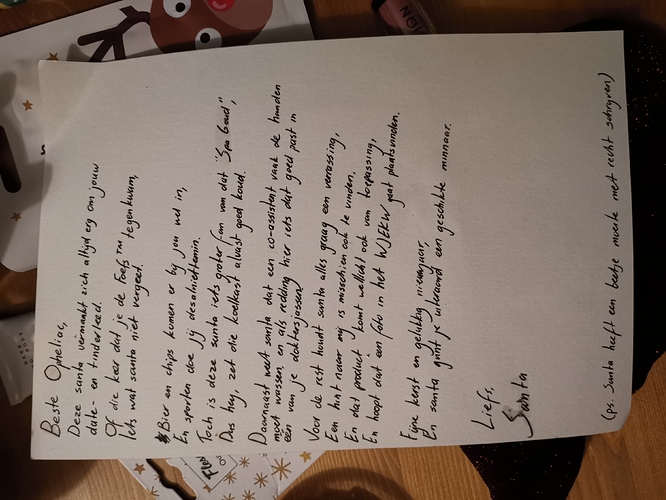 Beste Ophelias,
Deze santa vermaakt zich altijd erg om jouw
date- en tinderleed.
Of die keer dat je de Foefs™ tegenkwam,
Iets wat santa niet vergeet.
Bier en chips komen er bij jou wel in,
En sporten doe jij desalniettemin.
Toch is deze santa iets groter fan van dat "Spa Goud",
Dus hey, zet die koelkast alvast goed koud.
Daarnaast weet santa dat een co-assistent vaak de handen
moet wassen, en als redding hier iets dat goed past in
een van je doktersjassen!
Voor de rest houdt santa alles graag een verrassing,
Een hint naar mij is misschien ook te vinden,
En dat product komt wellicht ook van toepassing,
En hoopt dat een foto in het WJEKW gaat plaatsvinden.
Fijne kerst en gelukkig nieuwjaar,
En santa gunt je uiteraard een geschikte minnaar.
Liefs,
Santa
(ps. Santa heeft een beetje moeite met recht schrijven)